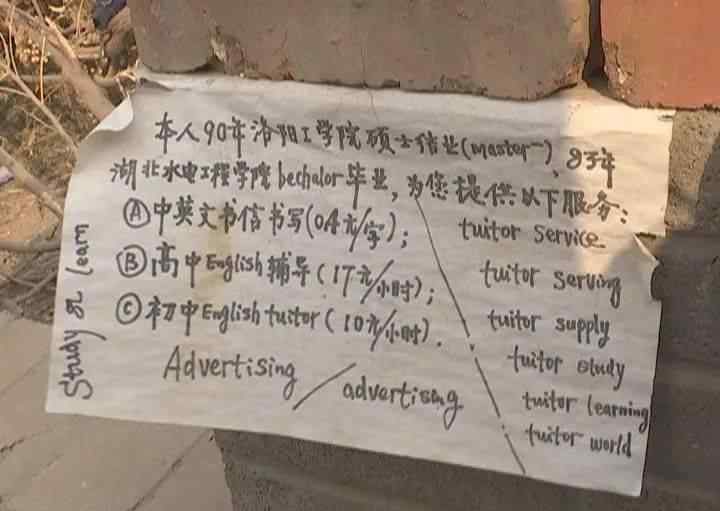 本人90年洛阳工学院硕士结业(master一)、83年
湖北水电工程学院bechalor毕业,为您提供以下服务:
Ⓐ中英文书信书写(0.4元/字);
Ⓑ高中English辅导(17元/小时);
Ⓒ初中English tuitor(10元/小时).
Advertising/advertising
tuitor service
tuitor serving
tuitor supply
tuitor study
tuitor learning
tuitor world
Study or learn